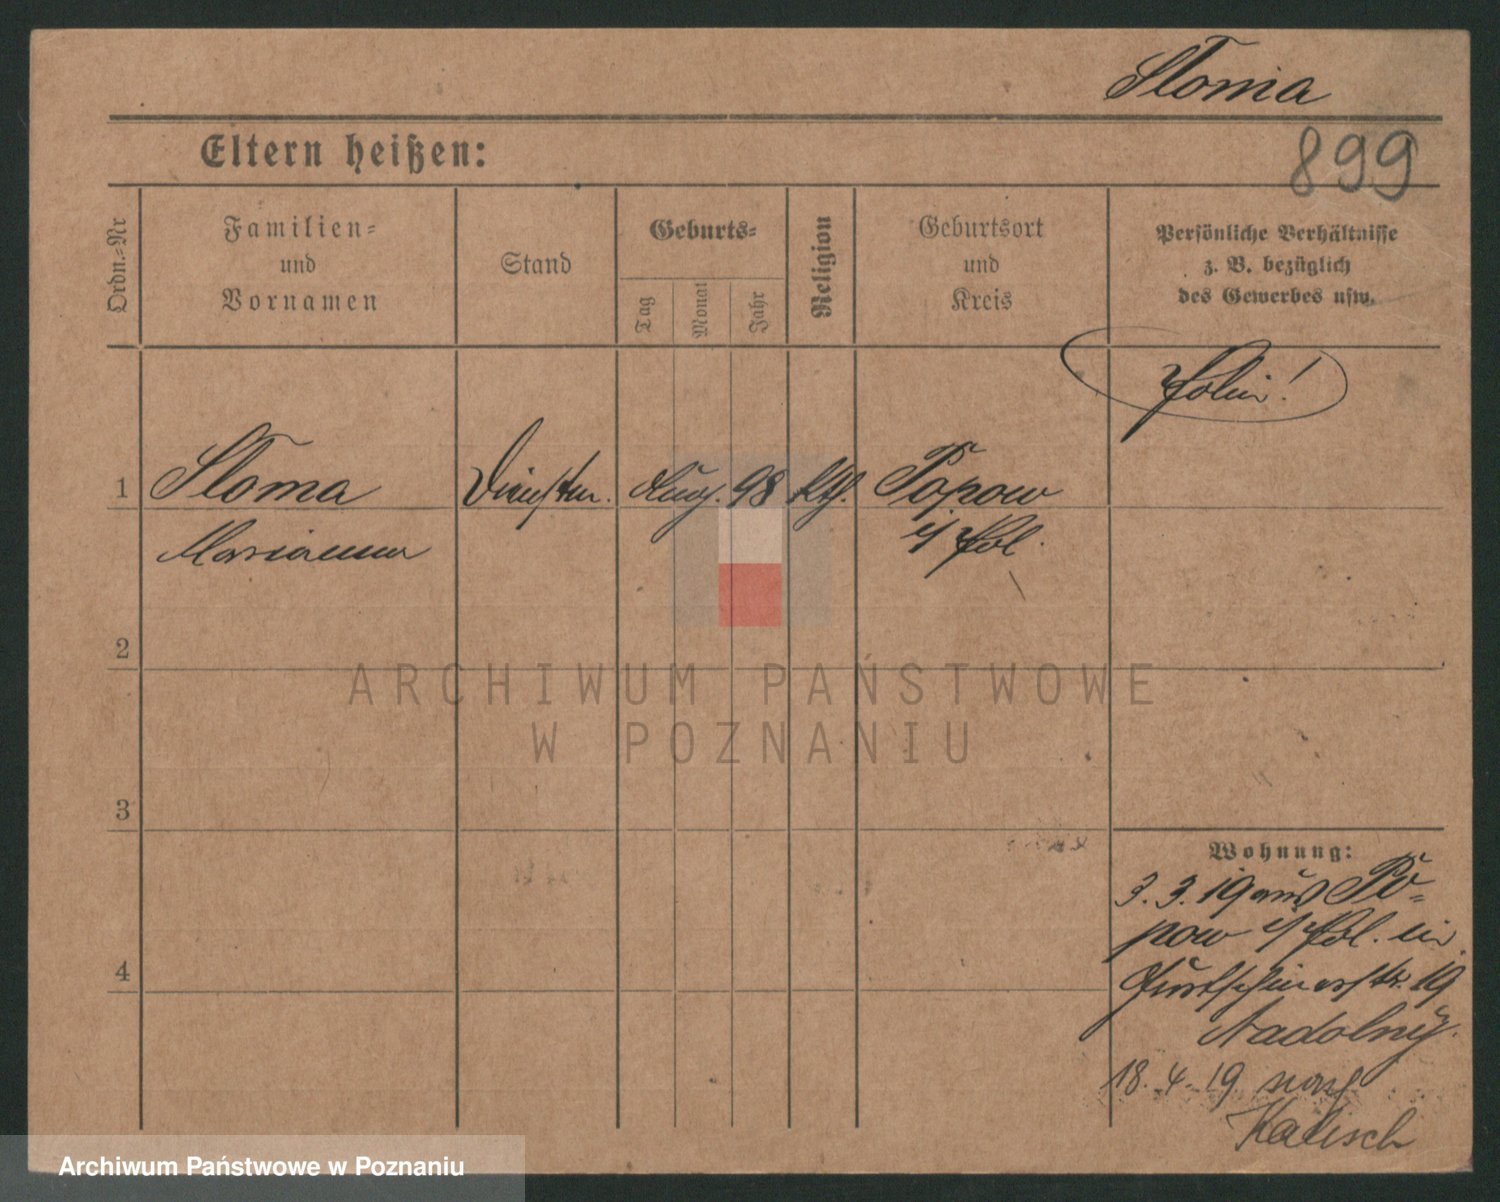 Stoma
899
Eltern heißen:
Ordn.-Nr
Familien-
und
Vornamen
Stand
Geburts-
Tag
Monat
Jahr
Religion
Geburtsort
und
Kreis
Persönliche Verhältnisse
z. B. bezüglich
des Gewerbes usw.
Polin!
1 Stoma Aug. 98 kth. Popow
Marianna i/ Pol.
2
3
4
Wohnung:
3. 3. 19 aus Po=
pow i/ Pol. in
19
Nadolny.
18. 4. 19 nach
Kalisch
ARCHIWUM PAŃSTWOWE
W POZNANIU
Archiwum Państwowe w Poznaniu